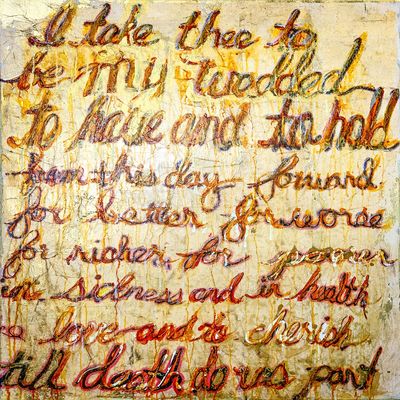 I take thee to
be MY wedded
to have and to hold
from this day forward
for better for worse
for richer for poorer
in sickness and in health
love and to cherish
till death do us part